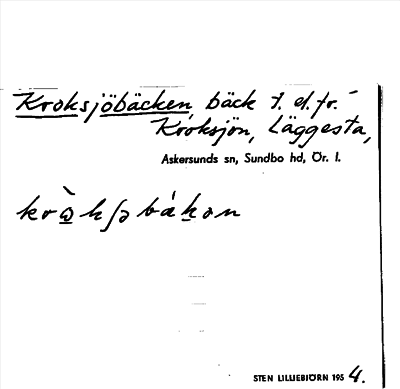 Kroksjöbäcken, bäck t. el. fr.
Kroksjön, Läggesta,
Askersunds sn, Sundbo hd, Ör. l.
STEN LILLIEBJÖRN 1954.